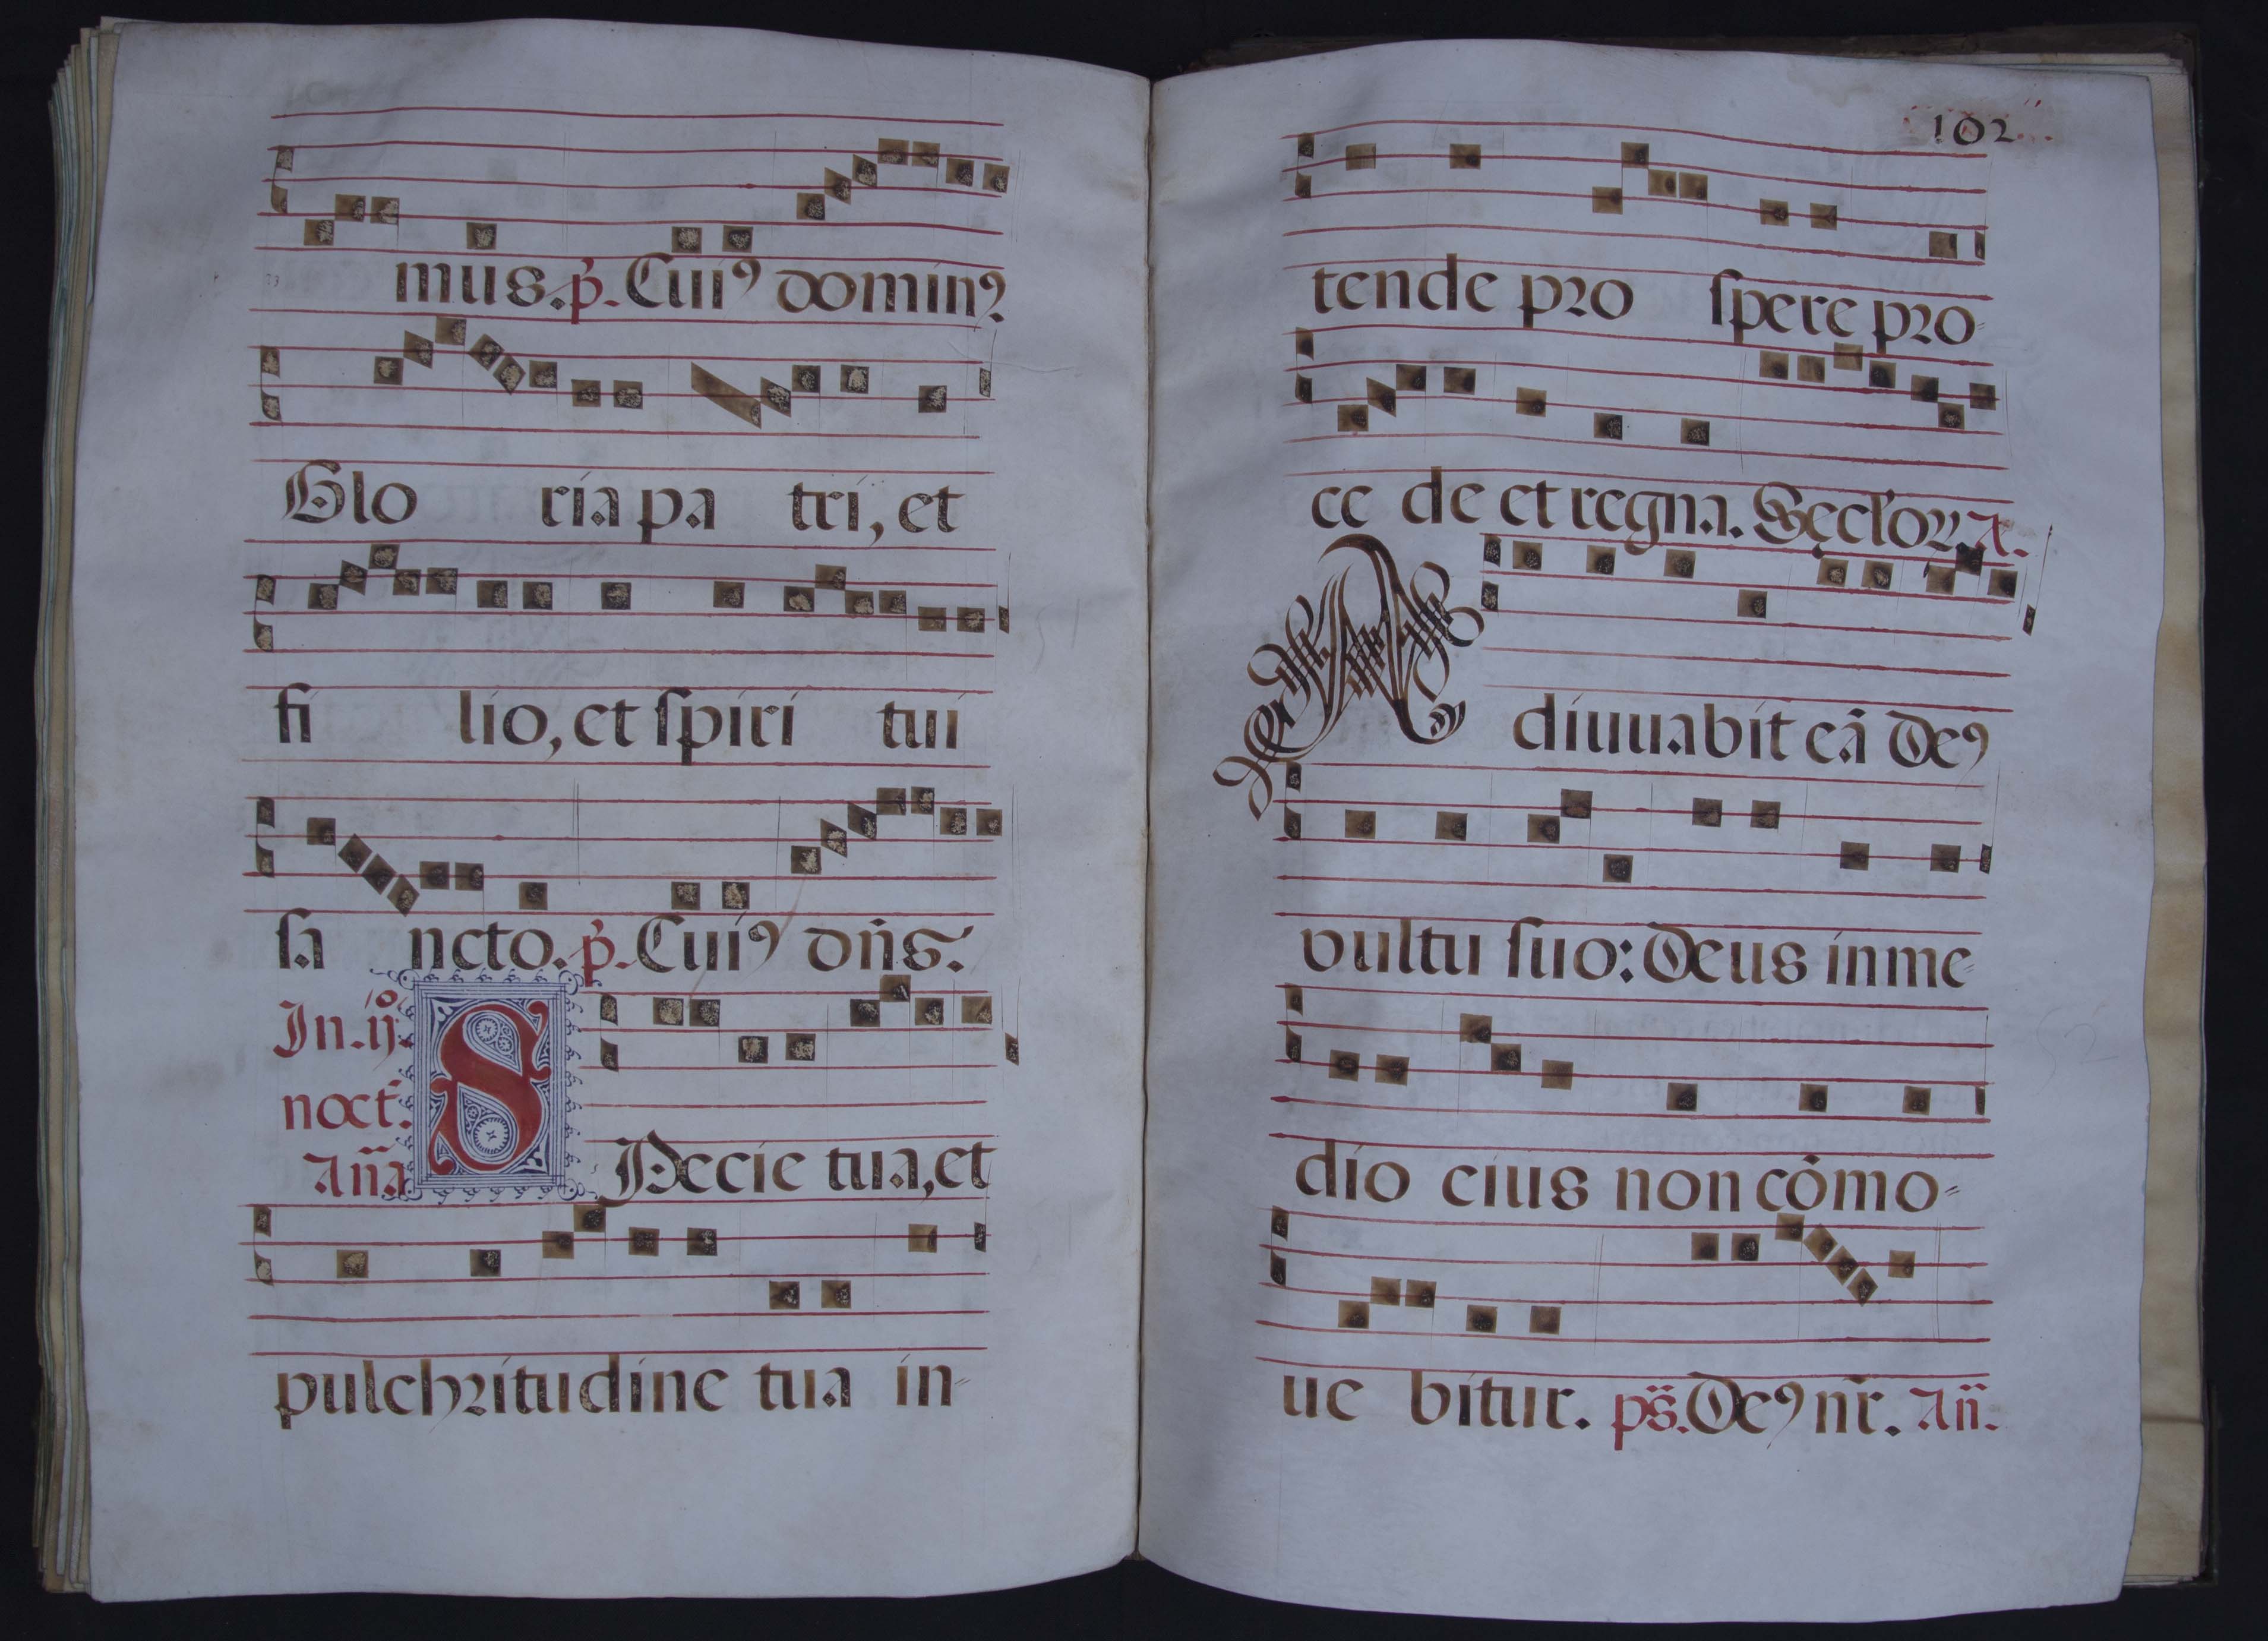 mus. p̄. Cuiꝯ dominꝯ.
Glo ria pa tri, et
fi lio, et ſpiri tui
ſa ncto. p̄. Cuiꝯ dn̄s.
In. ij.º
noct.
An̄a
SPecie tua, et
pulchꝛitudine tua in⸗
102
tende pꝛo ſpere pꝛo⸗
ce de et regna. Sęcloꝝ. A.
Adiuuabit eā Deꝯ
vultu ſuo: Deus in me⸗
dio eius non cōmo⸗
ue bitur. ps̄. Deꝯ nr̄. An̄.